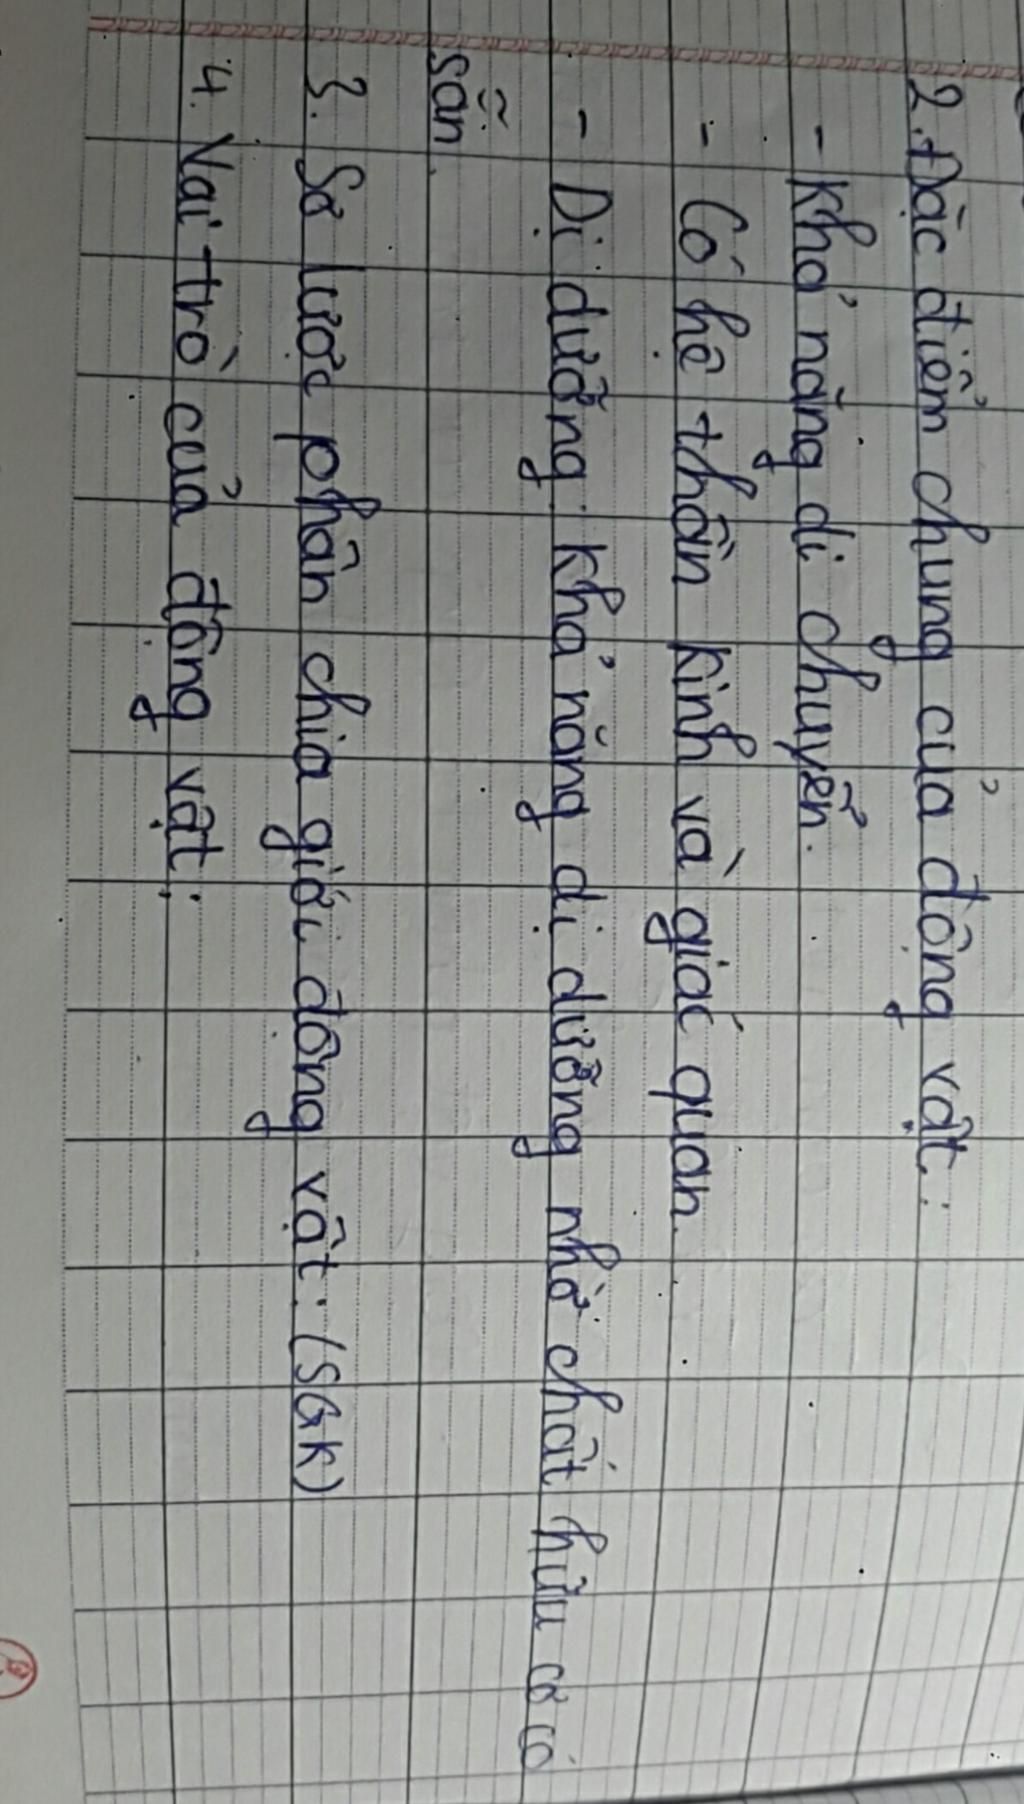 2. Đặc điểm chung của động vật:
- Khả năng di chuyển.
- Có hệ thần kinh và giác quan.
- Dị dưỡng: khả năng dị dưỡng nhờ chất hữu cơ có
sẵn.
3. Sơ lược phân chia giới động vật: (SGK)
4. Vai trò của động vật: